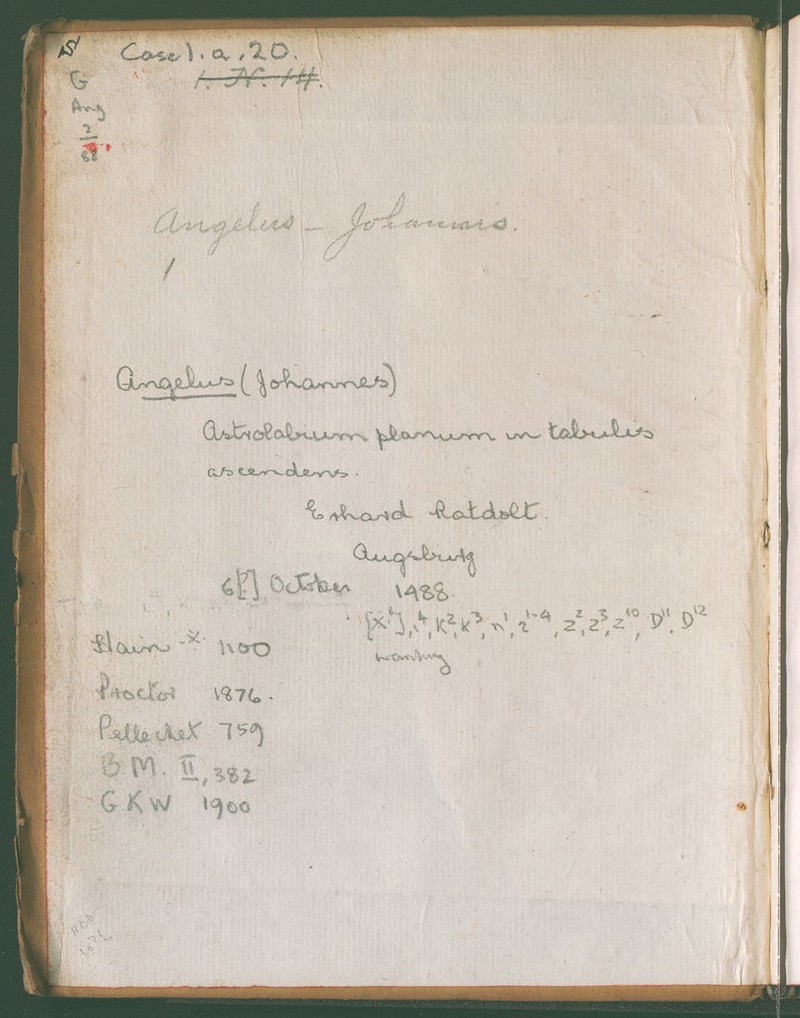 Case 1. a. 20.
1. N. 14.
G
Ang
2
88
Angelus - Johannis.
/
Angelus (Johannes)
Astrolabium planum in tabulis
ascendens.
Erhard Ratdolt.
Augsburg
6[?] October 1488.
[X⁴], i⁴, K², K³, n¹, z¹⁻⁴, z², z³, z¹⁰, D¹¹, D¹²
wanting
Hain -X- 1100
Proctor 1876.
Pellechet 759
B M. II, 382
G K W 1900